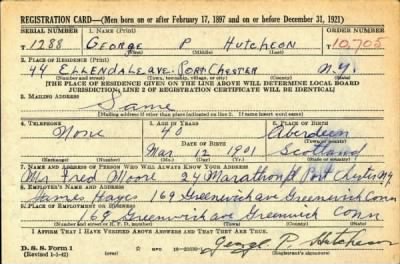 REGISTRATION CARD—(Men born on or after February 17, 1897 and on or before December 31, 1921)
SERIAL NUMBER 1. NAME (Print) ORDER NUMBER
T 1288 George P Hutcheon 10,705
(First) (Middle) (Last)
2. PLACE OF RESIDENCE (Print)
44 ELLENDALE AVE. PORT CHESTER N.Y.
(Number and street) (Town, township, village, or city) (County) (State)
[THE PLACE OF RESIDENCE GIVEN ON THE LINE ABOVE WILL DETERMINE LOCAL BOARD
JURISDICTION; LINE 2 OF REGISTRATION CERTIFICATE WILL BE IDENTICAL]
3. MAILING ADDRESS
Same
[Mailing address if other than place indicated on line 2. If same insert word same]
4. TELEPHONE 5. AGE IN YEARS 6. PLACE OF BIRTH
None 40 Aberdeen
DATE OF BIRTH (Town or county)
Mar 12 1901 Scotland
(Exchange) (Number) (Mo.) (Day) (Yr.) (State or country)
7. NAME AND ADDRESS OF PERSON WHO WILL ALWAYS KNOW YOUR ADDRESS
Mr Fred Moore 24 Marathon Port Chester N.Y.
8. EMPLOYER'S NAME AND ADDRESS
James Hayes 169 Greenwich ave Greenwich Conn
9. PLACE OF EMPLOYMENT OR BUSINESS
169 Greenwich ave Greenwich Conn
(Number and street or R. F. D. number) (Town) (County) (State)
I AFFIRM THAT I HAVE VERIFIED ABOVE ANSWERS AND THAT THEY ARE TRUE.
D. S. S. Form 1
(Revised 1-1-42) GPO George P. Hutcheon